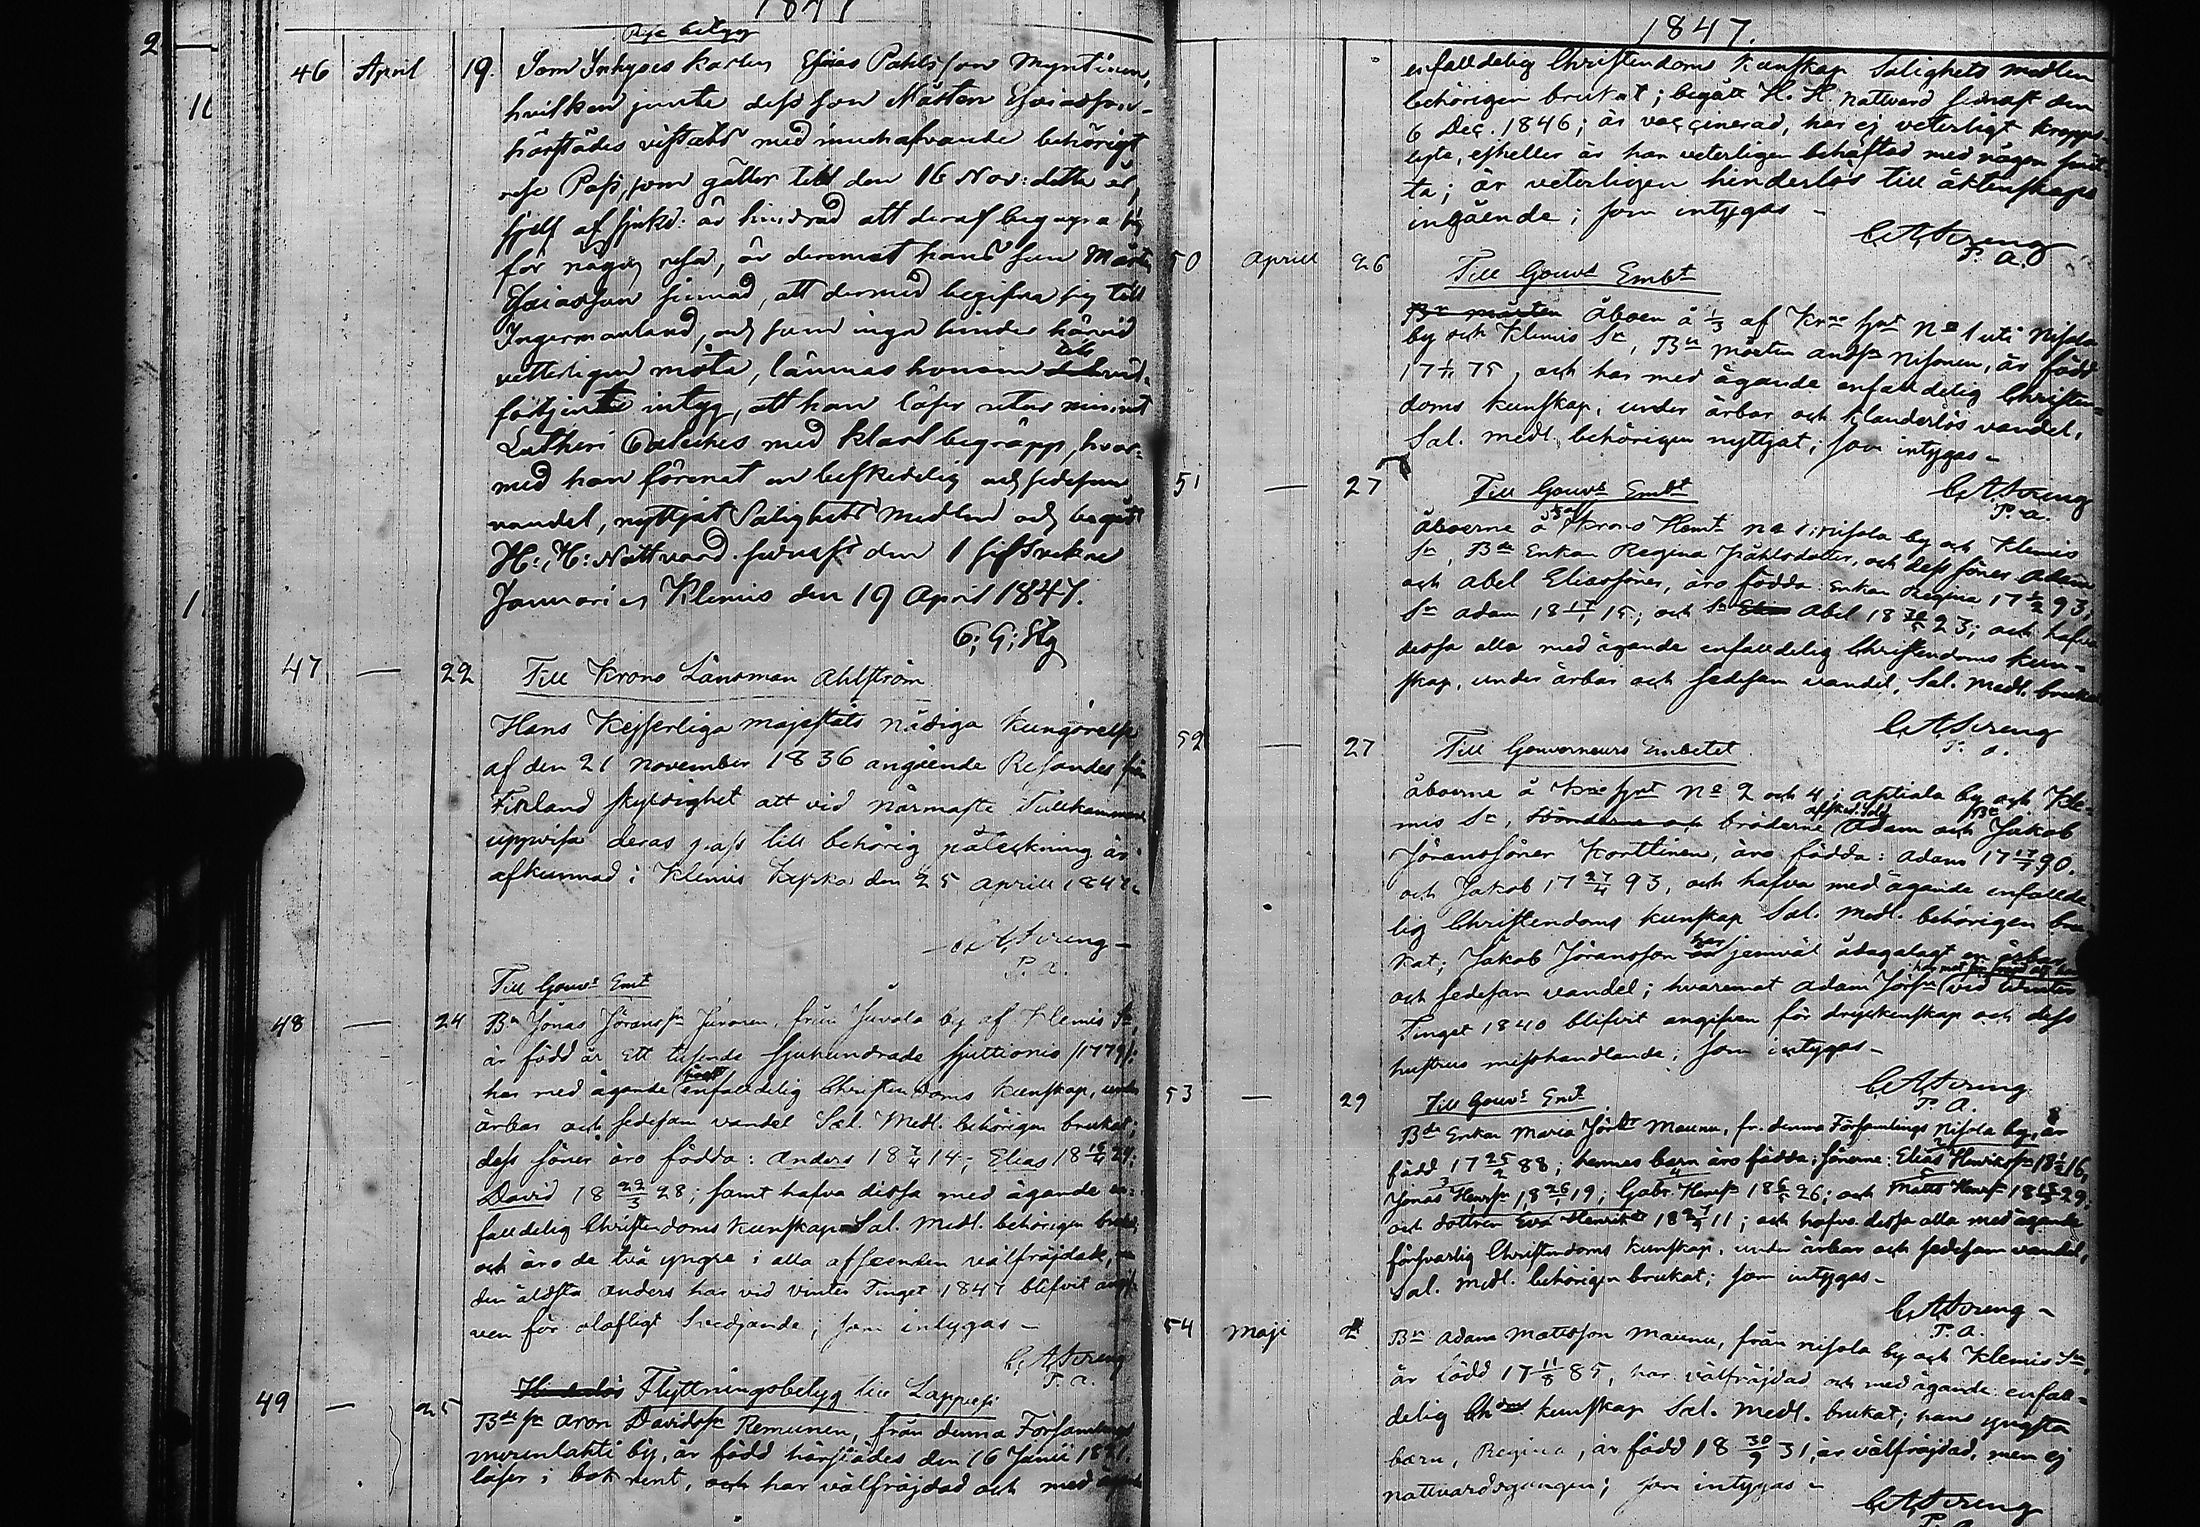 1847
Rese betyg
46 April 19. Som Inhyses karlen Esaias Påhlsson Myntinen,
hvilken jemte dess son Mårten Esaiasson
härstädes vistats med innehafvande behörigt
rese Pass, som gäller till den 16 Nov: detta år,
sjelf af sjukd: är hindrad att deraf begagna sig
för någon resa, är deremot hans son Mårten
Esaiasson sinnad, att dermed begifva sig till
Ingermanland, och som inga hinder härvid
vetterligen möta, lämnas honom
förtjente intyg, att han läser utur minnet
Lutheri Cateches med klart begräpp, hvar-
med han förenat en beskedelig och sedesam
vandel, nyttjat Salighets Medlen och begått
H: H: Nattvard senast den 1 sistvekne
Januari Klemis den 19 April 1847.
47 — 22 Till Krono Länsman Ahlström
Hans Kejserliga majestäts nådiga kungörelse
af den 21 November 1836 angående Resandes från
Finland skyldighet att vid närmaste Tullkammare
uppvisa deras pass till behörig påteckning är
afkunnad i Klemis Kyrka den 25 Aprill 1847.
C. A. Streng
P. a.
Till Gouvs Embt
48 — 24 Bn Jonas Jöranss. Juvonen, från Juvola by af Klemis Sn,
är född år ett tusende sjuhundrade sjuttionio /1779/:
har med ägande enfalldelig Christendoms kunskap, under
ärbar och sedesam vandel Sal. Medl. behörigen brukat;
dess söner äro födda: Anders 18 7/4 14; Elias 18 16/4 24;
David 18 22/3 28; samt hafva dessa med ägande en-
falldelig Christendoms kunskap Sal. Medl. behörigen brukat,
och äro de två yngre i alla afseenden välfräjdade,
den äldsta Anders har vid vinter Tinget 1847 blifvit angif-
ven för olofligt Svedjande; som intygas —
C. A. Streng
P. a.
49 — 25 Flyttningsbetyg till Lappvesi
Bde sn Aron Davidss. Remunen, från denna Församlings
by, är född härstädes den 16 Junii
läser i bok rent, och har välfräjdad och med ägande
1847.
enfalldelig Christendoms kunskap Salighets medlen
behörigen brukat; begått H. H. nattvard senast den
6 Dec. 1846; är vaccinerad, har ej veterligt kropps-
lyte, ejheller är han veterligen behäftad med någon smit-
ta; är veterligen hinderlös till äktenskaps
ingående; som intygas —
C. A. Streng
P. A.
50 Aprill 26 Till Gouvs Embt
Bn mårten Åboen å 1/3 af Krno Hmt No 1 uti Nisola
by och Klemis Sn, Bn Mårten Andss. Nisonen, är född
17 1/11 75, och har med ägande enfalldelig Christen-
doms kunskap, under ärbar och klanderlös vandel,
Sal. medl. behörigen nyttjat; som intygas —
C. A. Streng
P. a.
51 — 27 Till Gouvs Embt
åboerne å Krono Hemt No 1 i Nisola by och Klemis
Sn, Bde Enkan Regina Påhlsdotter, och dess söner Adam
och Abel Eliassöner, äro födda: Enkan Regina 17 93,
Sn Adam 18 15; och Sn Abel 18 23; och hafva
dessa alla med ägande enfalldelig Christendoms kun-
skap, under ärbar och sedesam vandel, Sal. Medl. brukat.
C. A. Streng
P. a.
52 — 27 Till Gouverneurs Embetet
åboerne å Krno Hmt No 2 och 4 i by och Kle-
mis Sn, Bönderne och bröderne Adam och Jakob
Jöranssöner Korttinen, äro födda: Adam 17 90.
och Jakob 17 27/4 93, och hafva med ägande enfallde-
lig Christendoms kunskap Sal. medl. behörigen bru-
kat; Jakob Jöransson har jemväl ådagalagt en ärbar
och sedesam vandel; hvaremot Adam Jörss. vid Winter
Tinget 1840 blifvit angifven för dryckenskap och dess
hustrus misshandlande; som intygas —
C. A. Streng
P. A.
53 — 29 Till Gouvs Embt
Bde Enkan Maria Jörsdt Maunu, fr. denna Församlings Nisola by, är
född 17 25/2 88; hennes barn äro födda; sönerne: Elias Henrikss. 18 1/2 16,
Jonas Henrss. 18 26/1 19; Gabr. Henrss. 18 6/5 26; och Matts Henrss. 18 29;
och dottren Eva Henriksd. 18 11; och hafva dessa alla med ägande
försvarlig Christendoms kunskap, under ärbar och sedesam vandel,
Sal. Medl. behörigen brukat; som intygas —
C. A. Streng —
P. A.
54 Maji 2 Bn Adam Mattsson Maunu, från Nisola by och Klemis Sn,
är född 17 11/8 85, har välfräjdad och med ägande enfall-
delig Chdms kunskap Sal. Medl. brukat; hans yngsta
barn, Regina, är född 18 30/9 31, är välfräjdad, men ej
nattvardsgången; som intygas —
C. A. Streng
P. a.